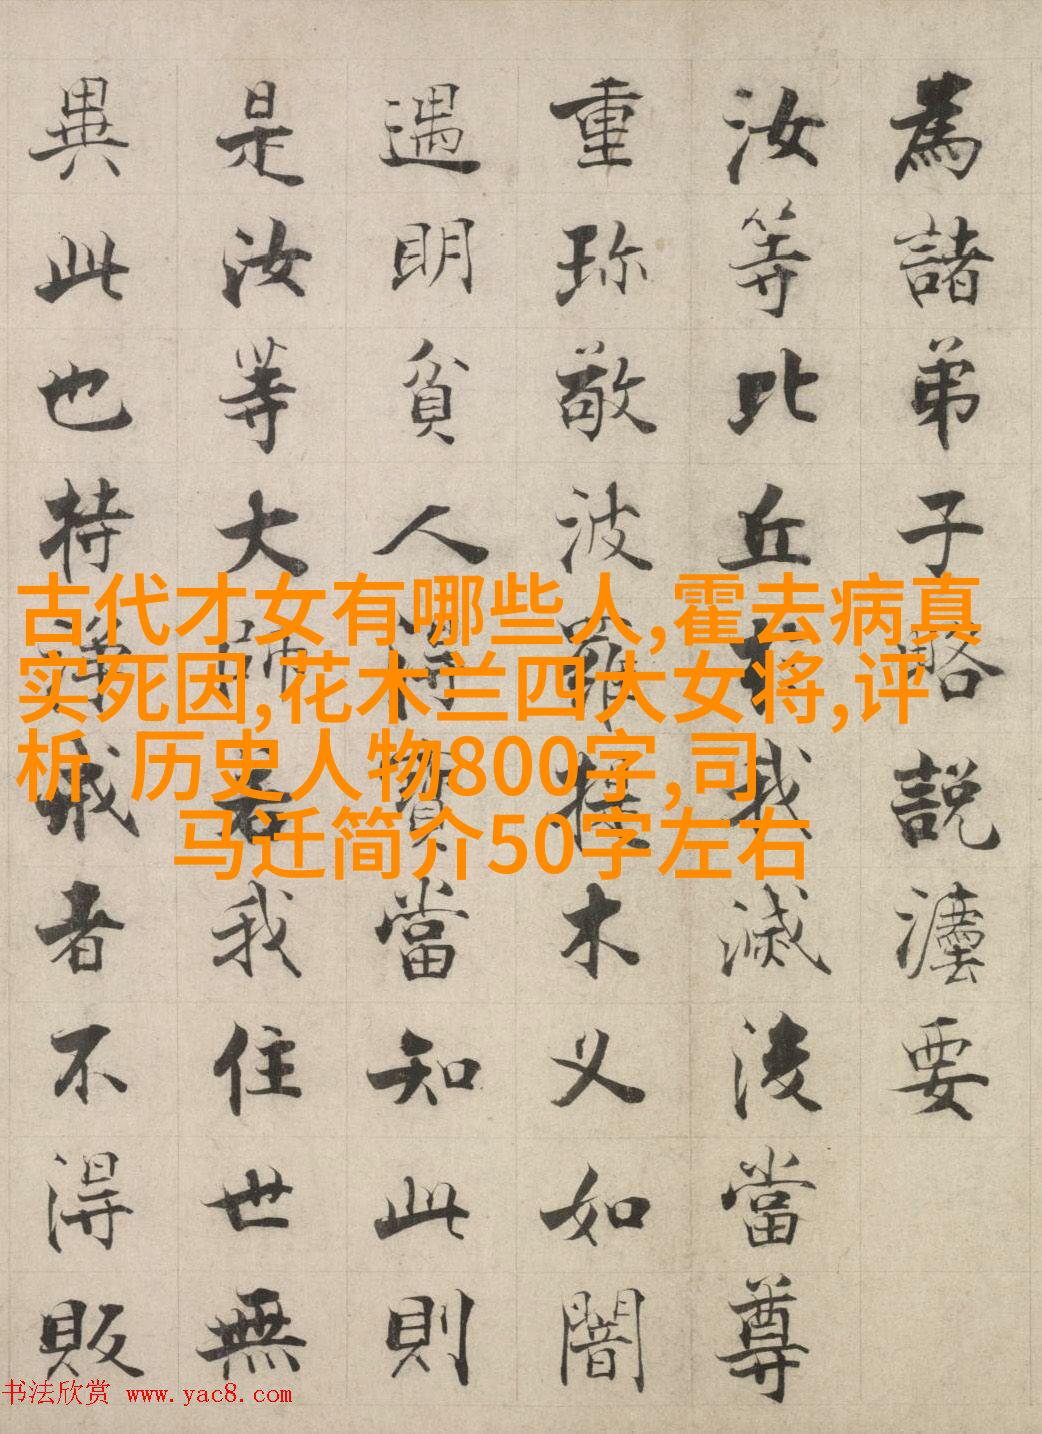 為諸弟子略說灋要
汝等比丘於我滅後當尊
重珎敬波羅提木叉如闇
遇明貧人得寳當知此則
是汝等大師若我住世無
異此也持淨戒者不得販
古代才女有哪些人,霍去病真
实死因,花木兰四大女将,评
析 历史人物800字,司
马迁简介50字左右
书法欣赏 www.yac8.com